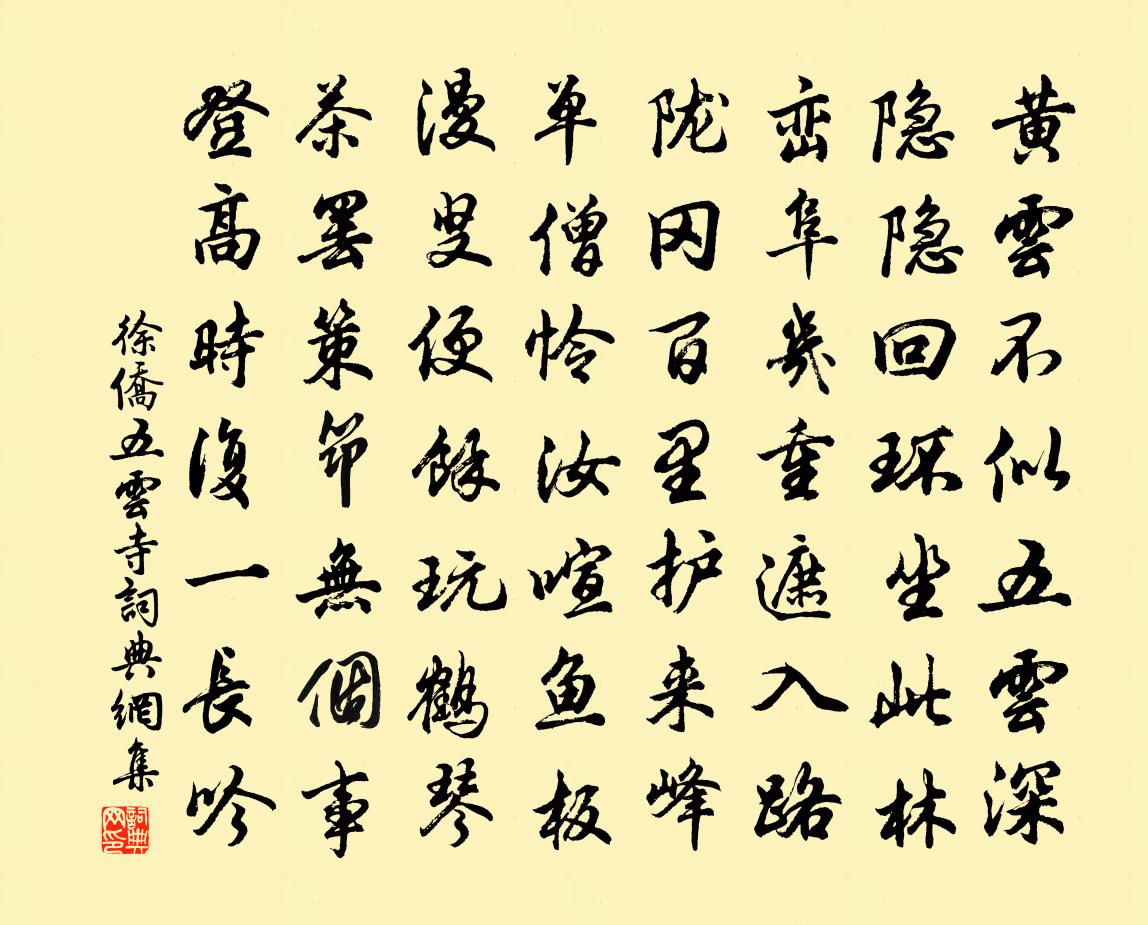 黄雲不似五雲深
隐隐回环坐此林
峦阜幾重遮入路
陇冈百里护来峰
单僧怜汝喧鱼板
漫叟便餘玩鶴琴
茶罢策笻無個事
登高時復一長吟
徐僑五雲寺詞典網集
詞典網印